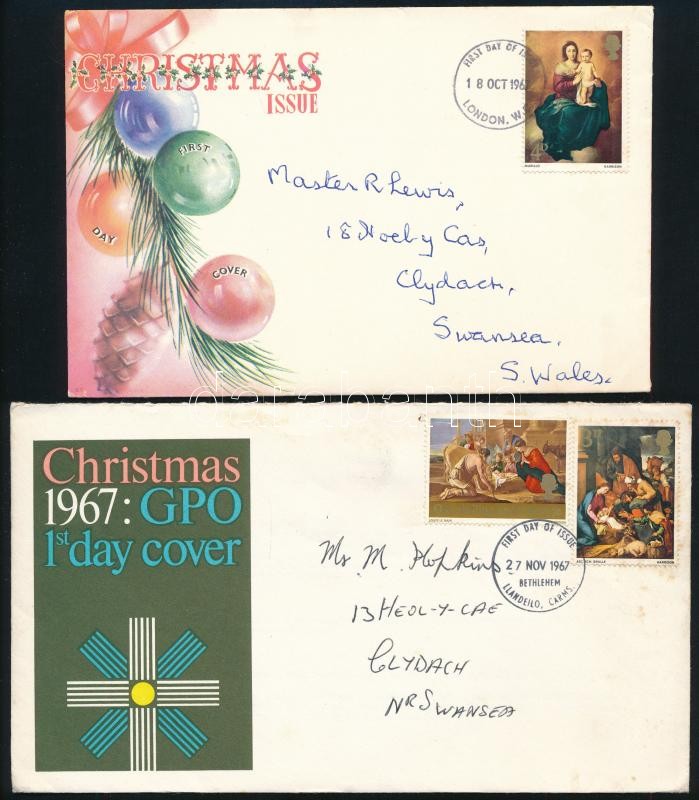 CHRISTMAS
ISSUE
FIRST
DAY
COVER
FIRST DAY OF
18 OCT 196
LONDON, W.
4D
MURILLO
HARRISON
Master R Lewis,
18 Hoel-y Cas,
Clydach,
Swansea.
S. Wales.
darabanth
Christmas
1967: GPO
1st day cover
LOUIS LE NAIN
HARRISON
FIRST DAY OF ISSUE
27 NOV 1967
BETHLEHEM
LLANDEILO, CARMS.
Mr M. Hopkins
13 HEOL-Y-CAE
CLYDACH
NR SWANSEA